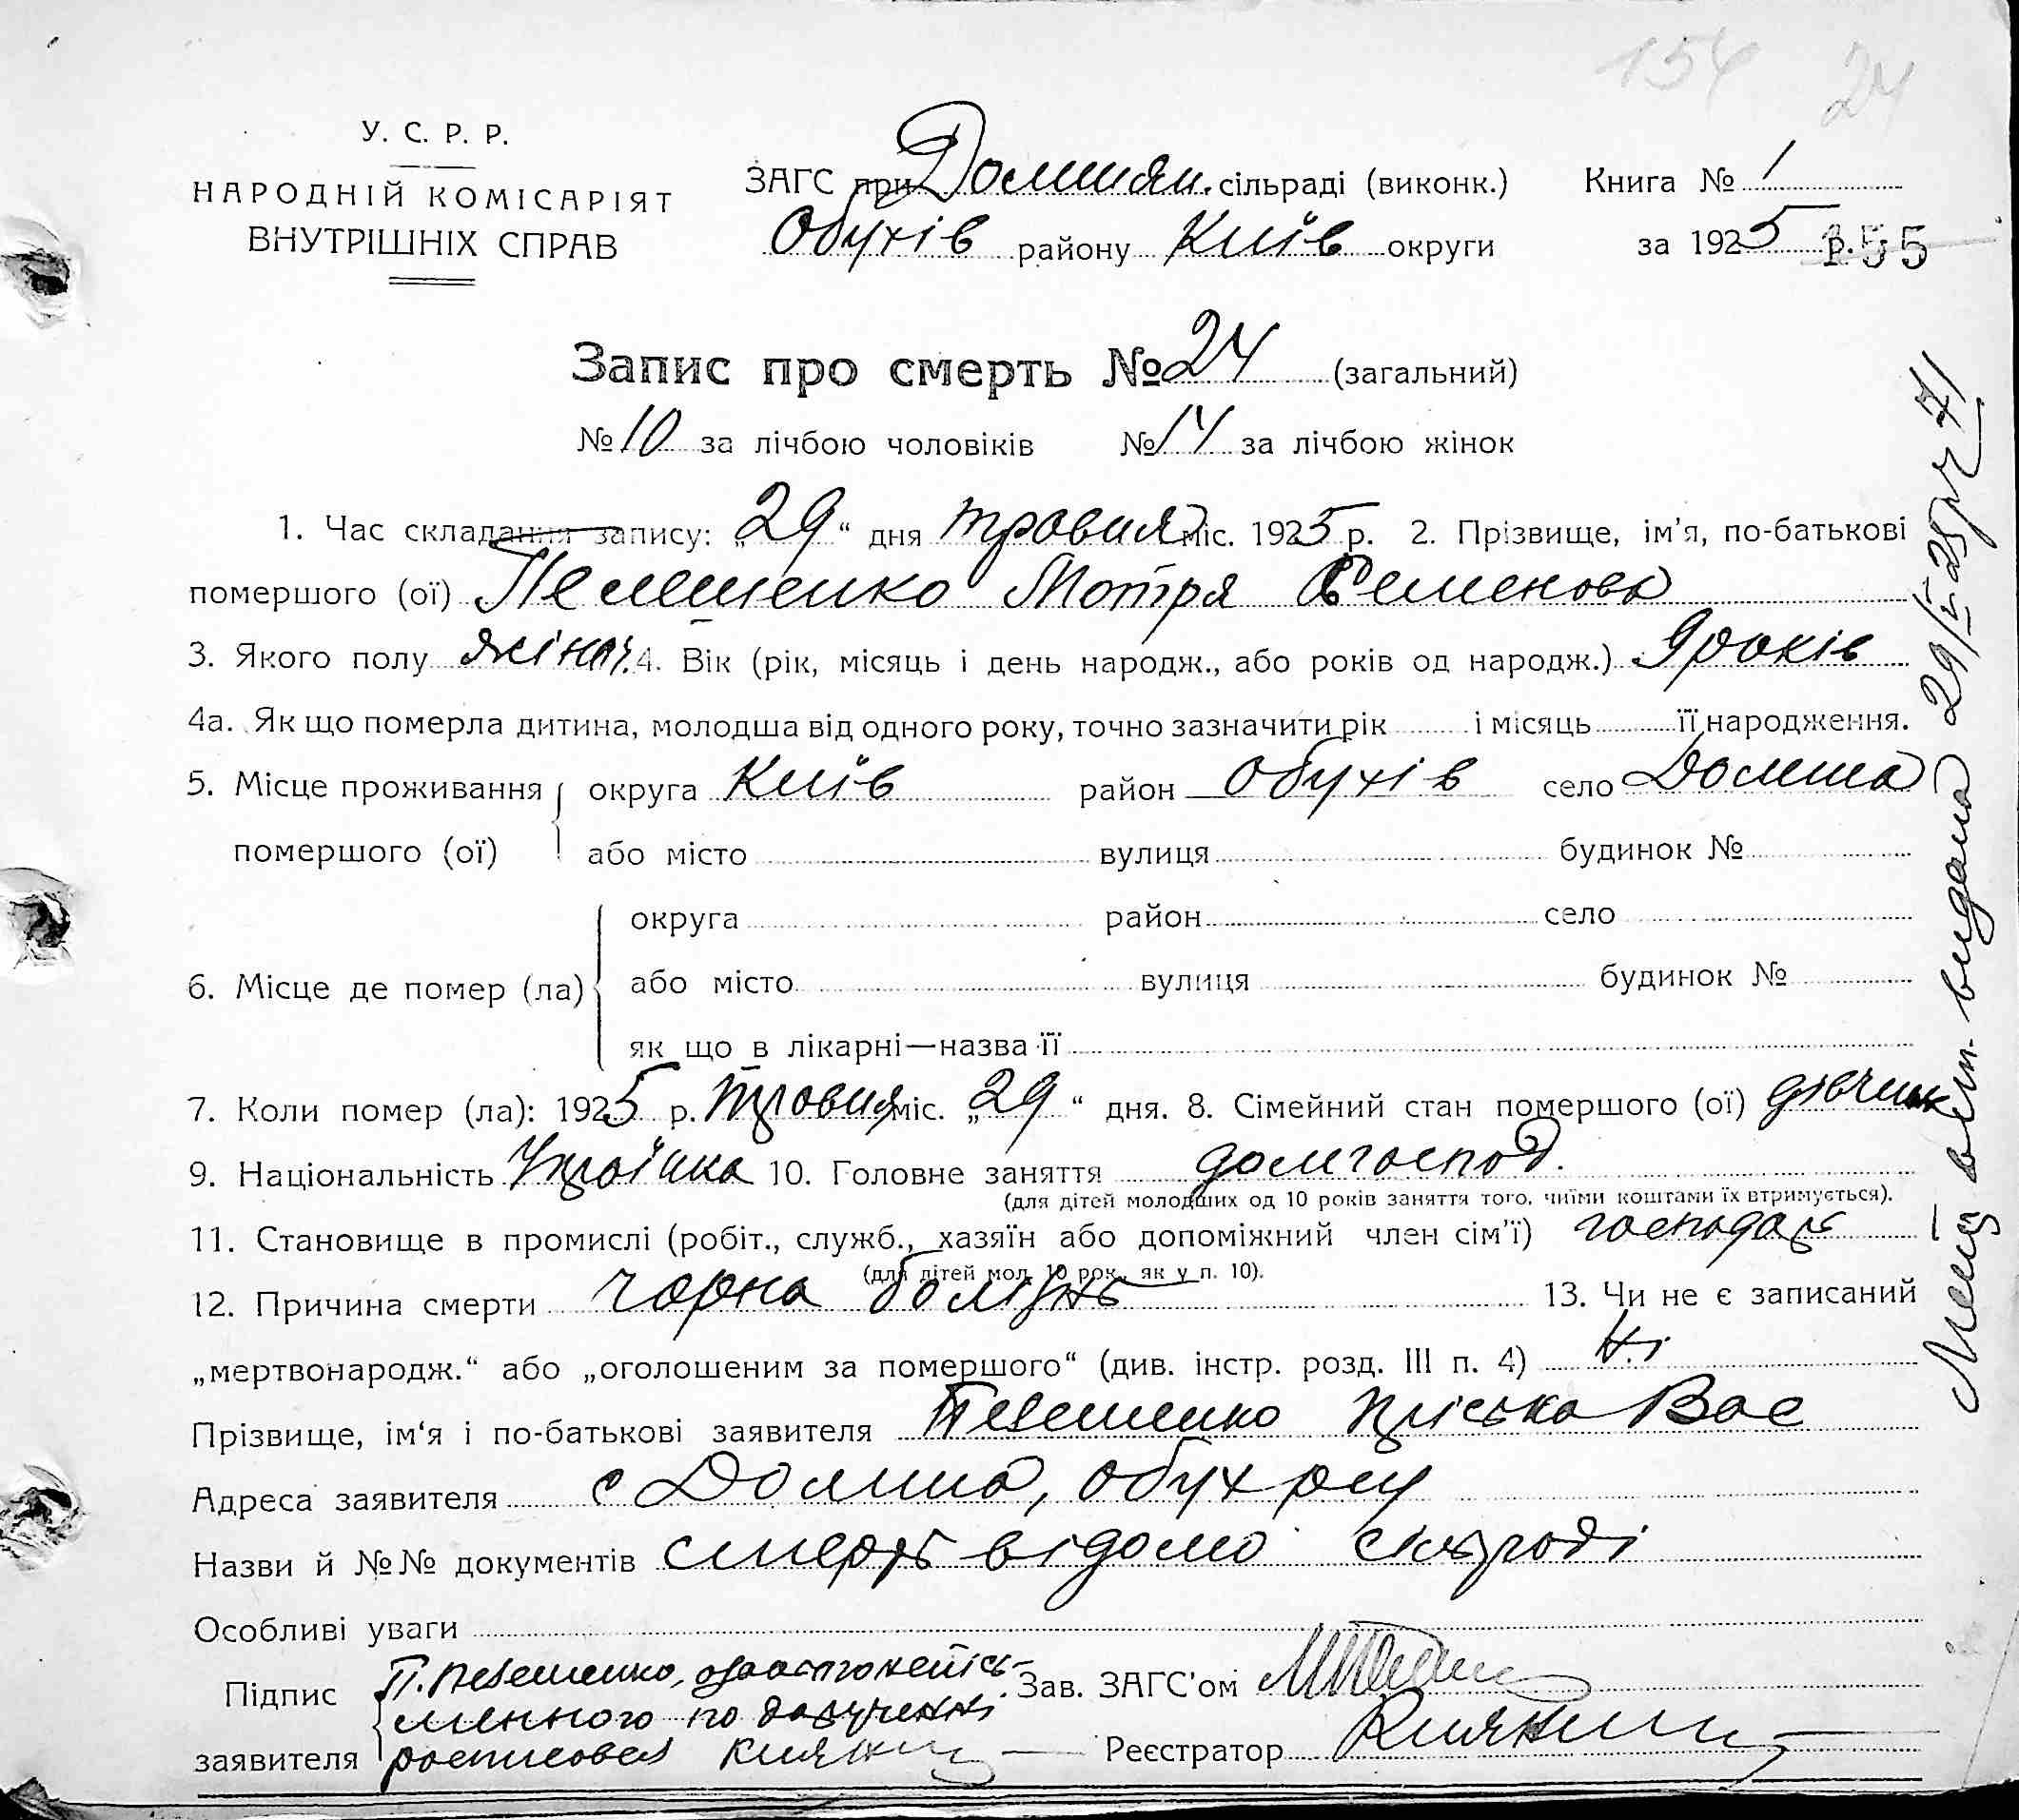 154 24
У. С. Р. Р.
НАРОДНІЙ КОМІСАРІЯТ
ВНУТРІШНІХ СПРАВ
ЗАГС при Долинян. сільраді (виконк.)
Обухів району Київ округи
Книга № 1
за 1925 р. 155
Запис про смерть № 24 (загальний)
№ 10 за лічбою чоловіків № 14 за лічбою жінок
1. Час складання запису: „29“ дня травня міс. 1925 р. 2. Прізвище, ім'я, по-батькові
помершого (ої) Мотря Семенова
3. Якого полу жіноч. 4. Вік (рік, місяць і день народж., або років од народж.) 9 років
4а. Як що померла дитина, молодша від одного року, точно зазначити рік і місяць її народження.
5. Місце проживання округа Київ район Обухів село Долина
помершого (ої) або місто вулиця будинок №
округа район село
6. Місце де помер (ла) або місто вулиця будинок №
як що в лікарні—назва її
7. Коли помер (ла): 1925 р. травня міс. „29“ дня. 8. Сімейний стан помершого (ої) дівчина
9. Національність Українка 10. Головне заняття домгоспод.
(для дітей молодших од 10 років заняття того, чиїми коштами їх втримується).
11. Становище в промислі (робіт., служб., хазяїн або допоміжний член сім'ї) господар
(для дітей мол. 10 рок., як у п. 10).
12. Причина смерти чорна болізнь 13. Чи не є записаний
„мертвонародж.“ або „оголошеним за помершого“ (див. інстр. розд. III п. 4) Ні
Прізвище, ім'я і по-батькові заявителя Пріська Вас
Адреса заявителя с Долина, Обух рну
Назви й №№ документів смерть відома сільраді
Особливі уваги
Підпис заявителя
П.
по дорученні
росписався
Зав. ЗАГС'ом
Реєстратор
видана 29/V-25р ч 71